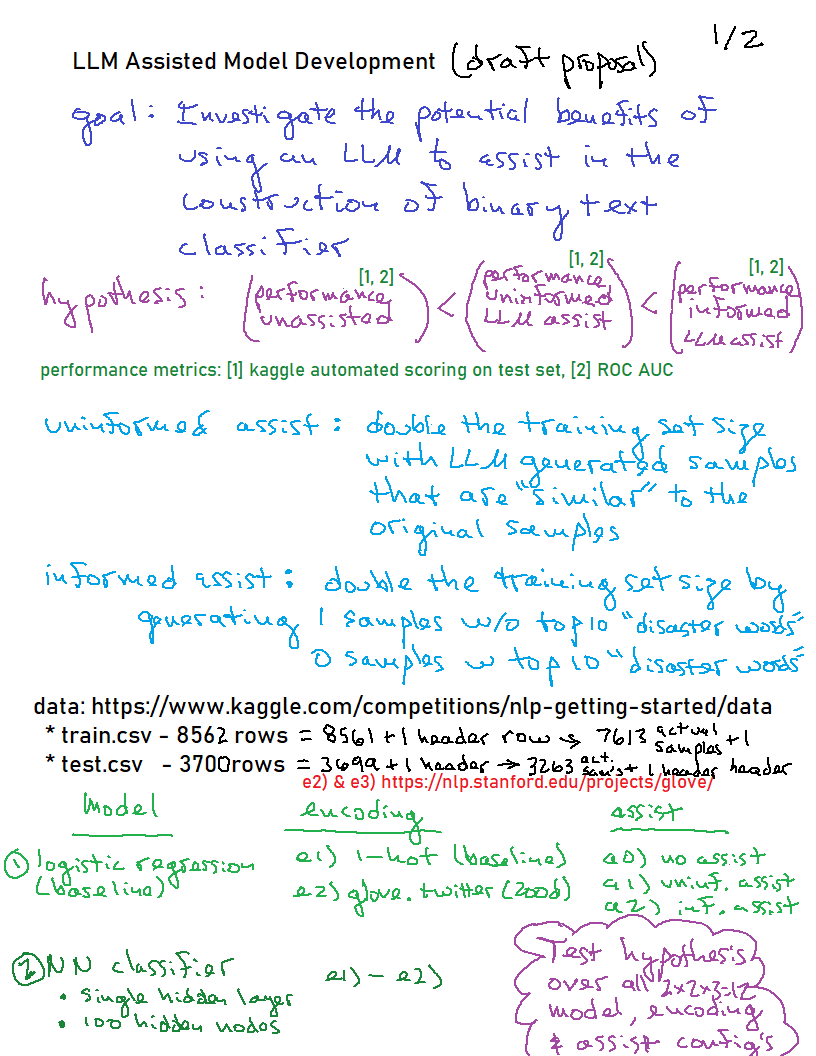 1/2
LLM Assisted Model Development (draft proposal)
goal: Investigate the potential benefits of
using an LLM to assist in the
construction of binary text
classifier
hypothesis: (performance unassisted) [1, 2] < (performance uninformed LLM assist) [1, 2] < (performance informed LLM assist) [1, 2]
performance metrics: [1] kaggle automated scoring on test set, [2] ROC AUC
uninformed assist: double the training set size
with LLM generated samples
that are "similar" to the
original samples
informed assist: double the training set size by
generating 1 samples w/o top 10 "disaster words"
0 samples w top 10 "disaster words"
data: https://www.kaggle.com/competitions/nlp-getting-started/data
* train.csv - 8562 rows = 8561 + 1 header row → 7613 actual samples + 1
* test.csv - 3700 rows = 3699 + 1 header → 3263 act. sam's + 1 header header
e2) & e3) https://nlp.stanford.edu/projects/glove/
Model encoding assist
① logistic regression e1) 1-hot (baseline) a0) no assist
(baseline) e2) glove.twitter (200d) a1) uninf. assist
a2) inf. assist
② NN classifier e1) - e2)
• single hidden layer
• 100 hidden nodes
Test hypothesis
over all 2x2x3=12
model, encoding
& assist config's